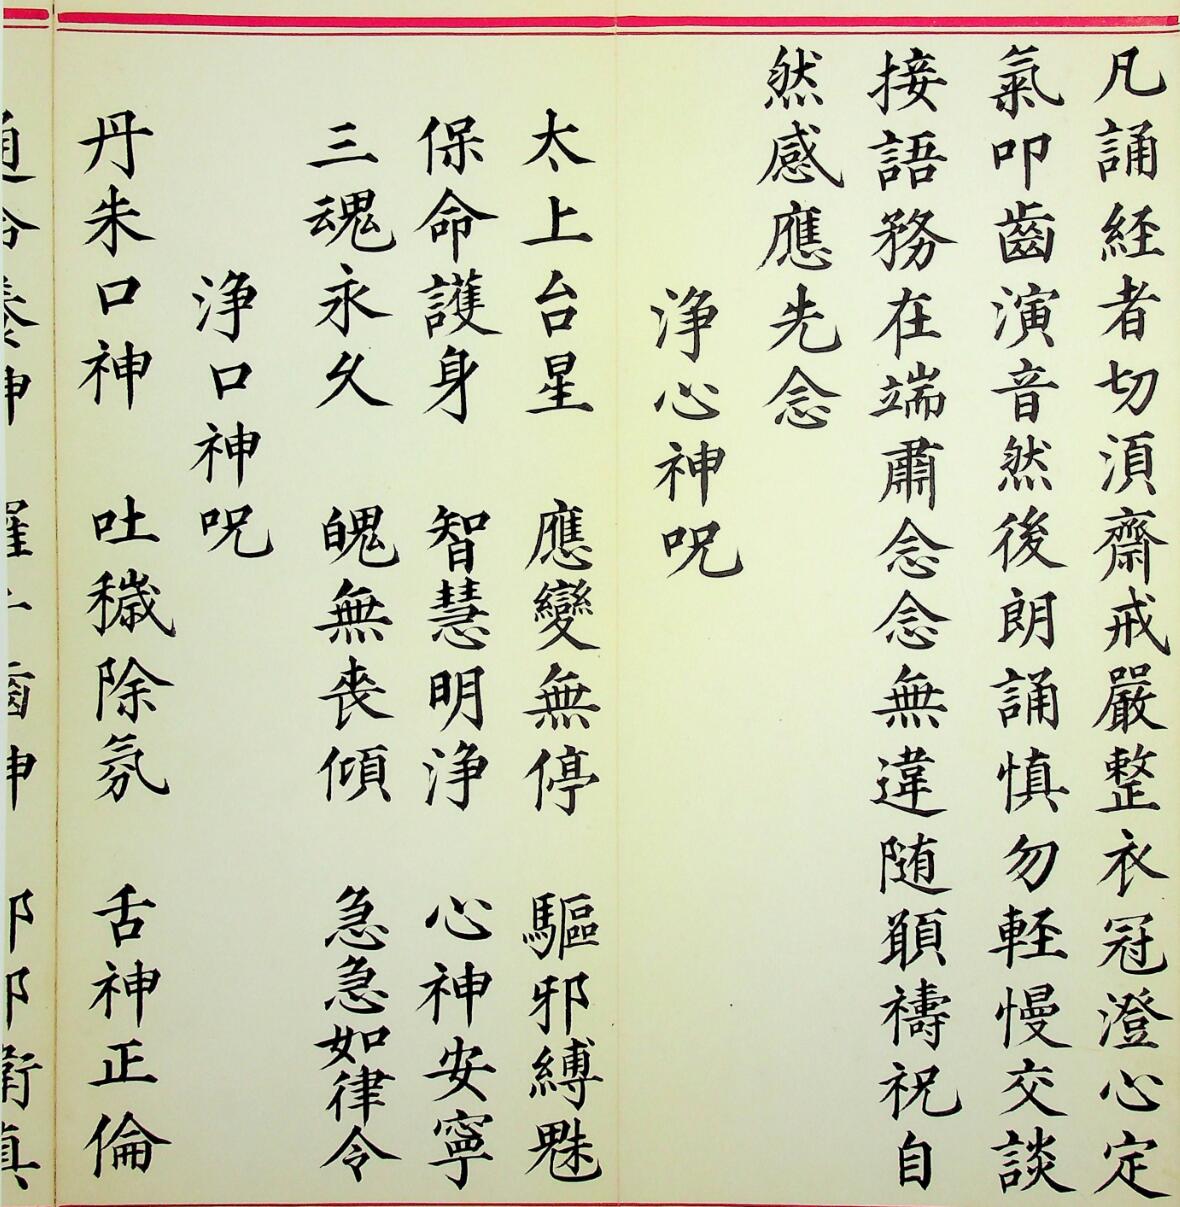 凡誦経者切須齋戒嚴整衣冠澄心定
氣叩齒演音然後朗誦慎勿軽慢交談
接語務在端肅念念無違随顓禱祝自
然感應先念
浄心神呪
太上台星 應變無停 驅邪縛魅
保命護身 智慧明浄 心神安寧
三魂永久 魄無喪傾 急急如律令
浄口神呪
丹朱口神 吐穢除氛 舌神正倫
神 神 衛真